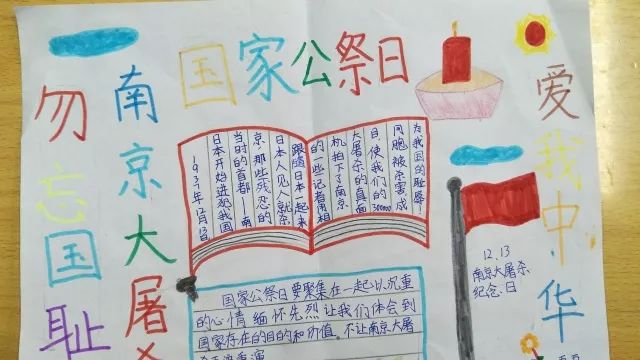 国家公祭日
勿忘国耻
南京大屠杀
爱我中华
1937年12月13日
日本开始进犯我国
当时的首都—南
京,那些残忍的
日本人见人就杀
跟随日本一起来
的一些记者用相
机拍下了南京
大屠杀的真面
目,使我们的300000
同胞被杀害,成
为我国的耻辱!
12.13
南京大屠杀
纪念日
国家公祭日要聚集在一起以沉重
的心情缅怀先烈,让我们体会到
国家存在的目的和价值,不让南京大屠